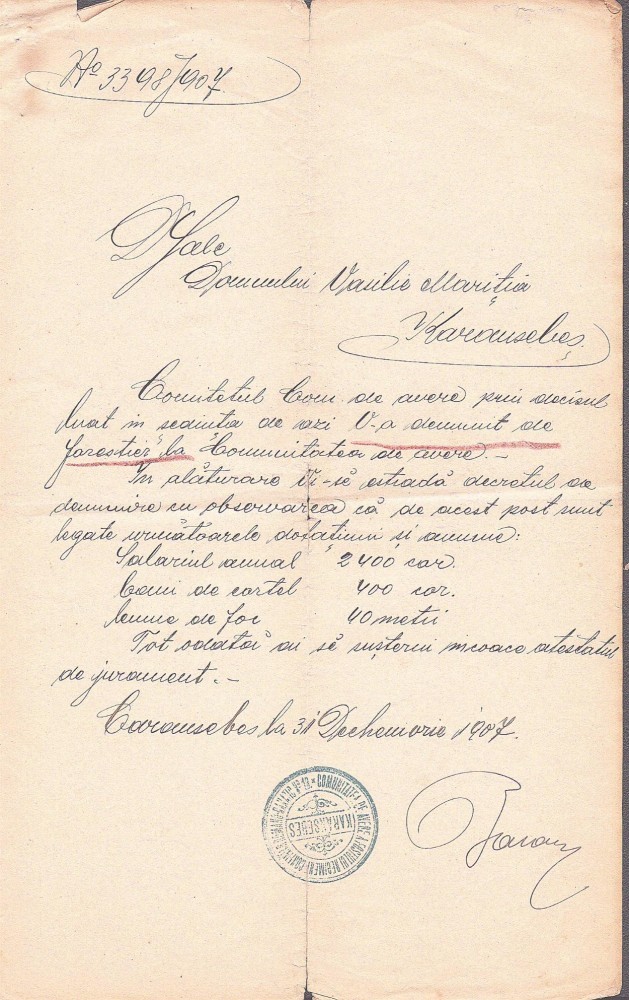 No 3398/907.
DSale
Domnului Vasilie Mariția
Karansebeș.
Comitetul Com. de avere prin decisul
luat in sedintia de azi V-a denumit de
„forestier" la Comunitatea de avere. -
In alăturare Vi-se estradă decretul de
denumire cu observarea că de acest post sunt
legate următoarele dotațiuni și anume:
Salariul anual 2400 cor.
bani de cortel 400 cor.
lemne de foc 40 metii
Tot odată ai să susterni incoace atestatul
de jurament. -
Caransebes la 31 Dechemvrie 1907.
COMUNITATEA DE AVERE A FOSTULUI REGIMENT CONFINIAR
KARANSEBES